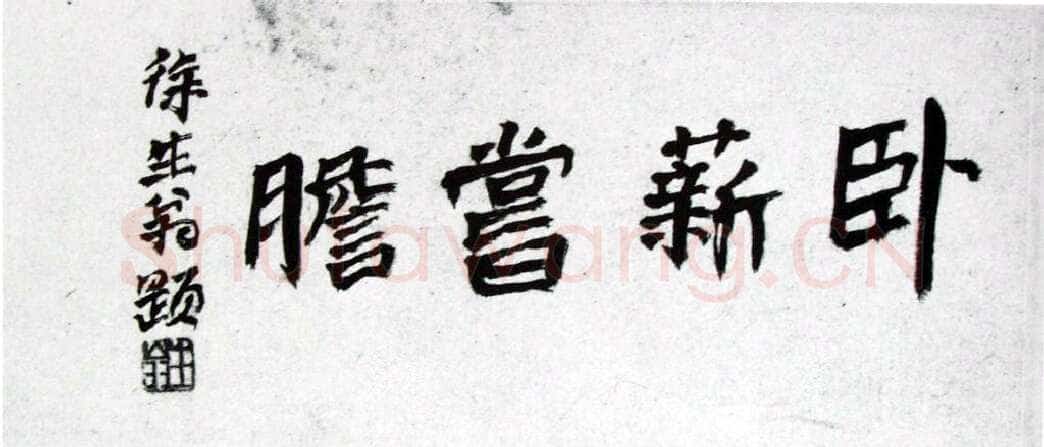 卧薪嘗膽
徐生翁題
ShufaWang.CN